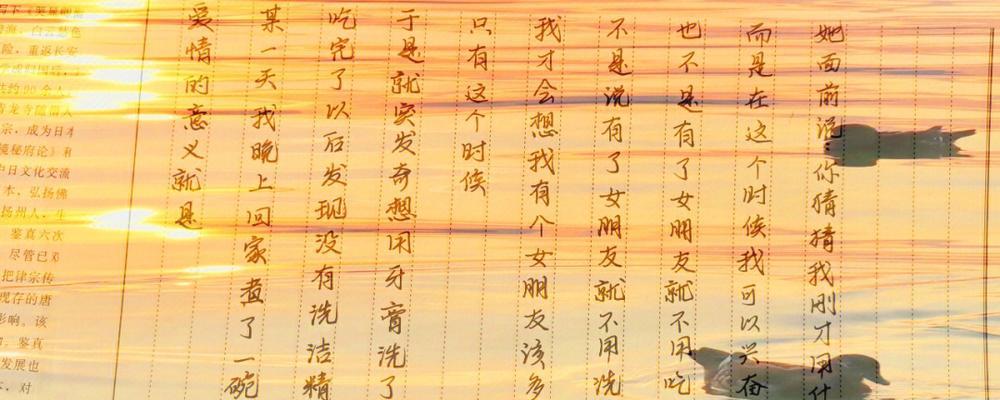 险，重返长安
青龙寺随僧人
宗，成为日
镜秘府论》和
中日文化交流
本，弘扬佛
扬州人，生
鉴真六次
尽管已
把律宗传
现存的唐
影响。该
鉴真
发展也
，对
爱情的意义就是
某一天我晚上回家煮了一碗
吃完了以后发现没有洗洁精
于是就突发奇想用牙膏洗了
只有这个时候
我才会想我有个女朋友该多
不是说有了女朋友就不用洗
也不是有了女朋友就不用吃
而是在这个时候我可以兴奋
她面前说你猜猜我刚才用什